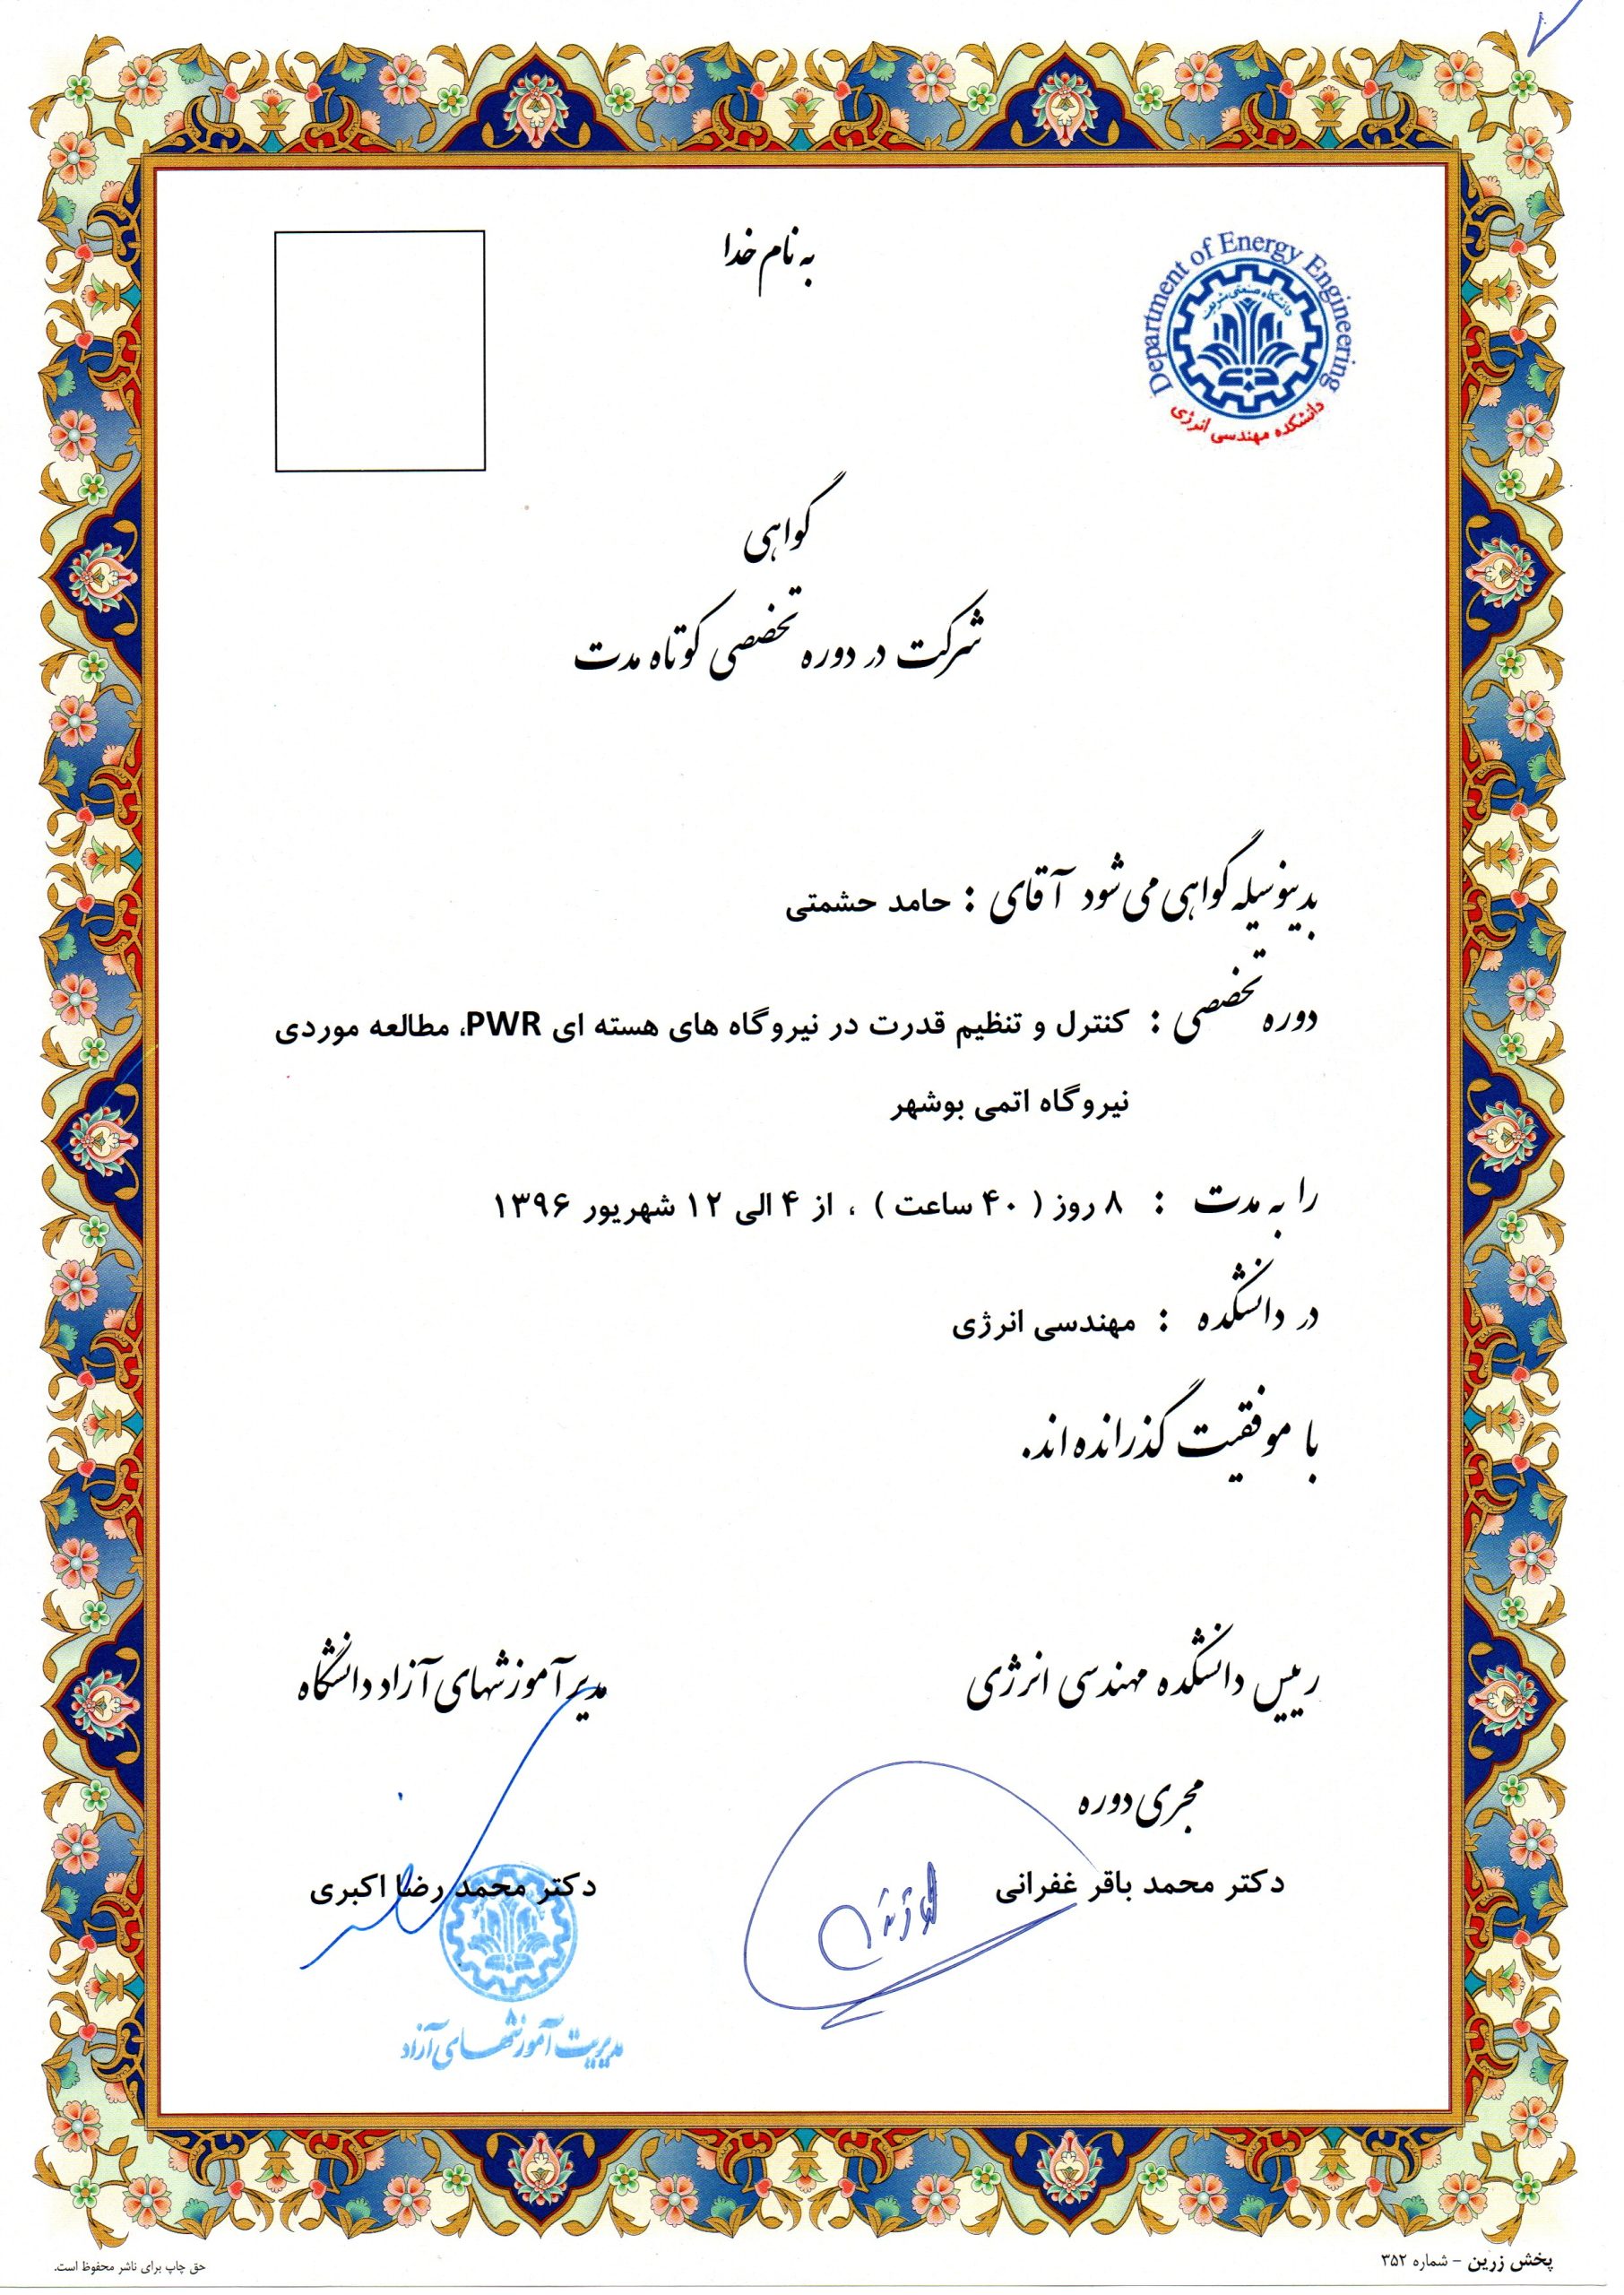 به نام خدا
Department of Energy Engineering
دانشگاه صنعتی شریف
دانشکده مهندسی انرژی
گواهی
شرکت در دوره تخصصی کوتاه مدت
بدینوسیله گواهی می شود آقای : حامد حشمتی
دوره تخصصی : کنترل و تنظیم قدرت در نیروگاه های هسته ای PWR، مطالعه موردی
نیروگاه اتمی بوشهر
را به مدت : ۸ روز ( ۴۰ ساعت ) ، از ۴ الی ۱۲ شهریور ۱۳۹۶
در دانشکده : مهندسی انرژی
با موفقیت گذرانده اند.
رییس دانشکده مهندسی انرژی
مجری دوره
دکتر محمد باقر غفرانی
مدیر آموزشهای آزاد دانشگاه
دکتر محمد رضا اکبری
مدیریت آموزشهای آزاد
پخش زرین - شماره ۳۵۲
حق چاپ برای ناشر محفوظ است.